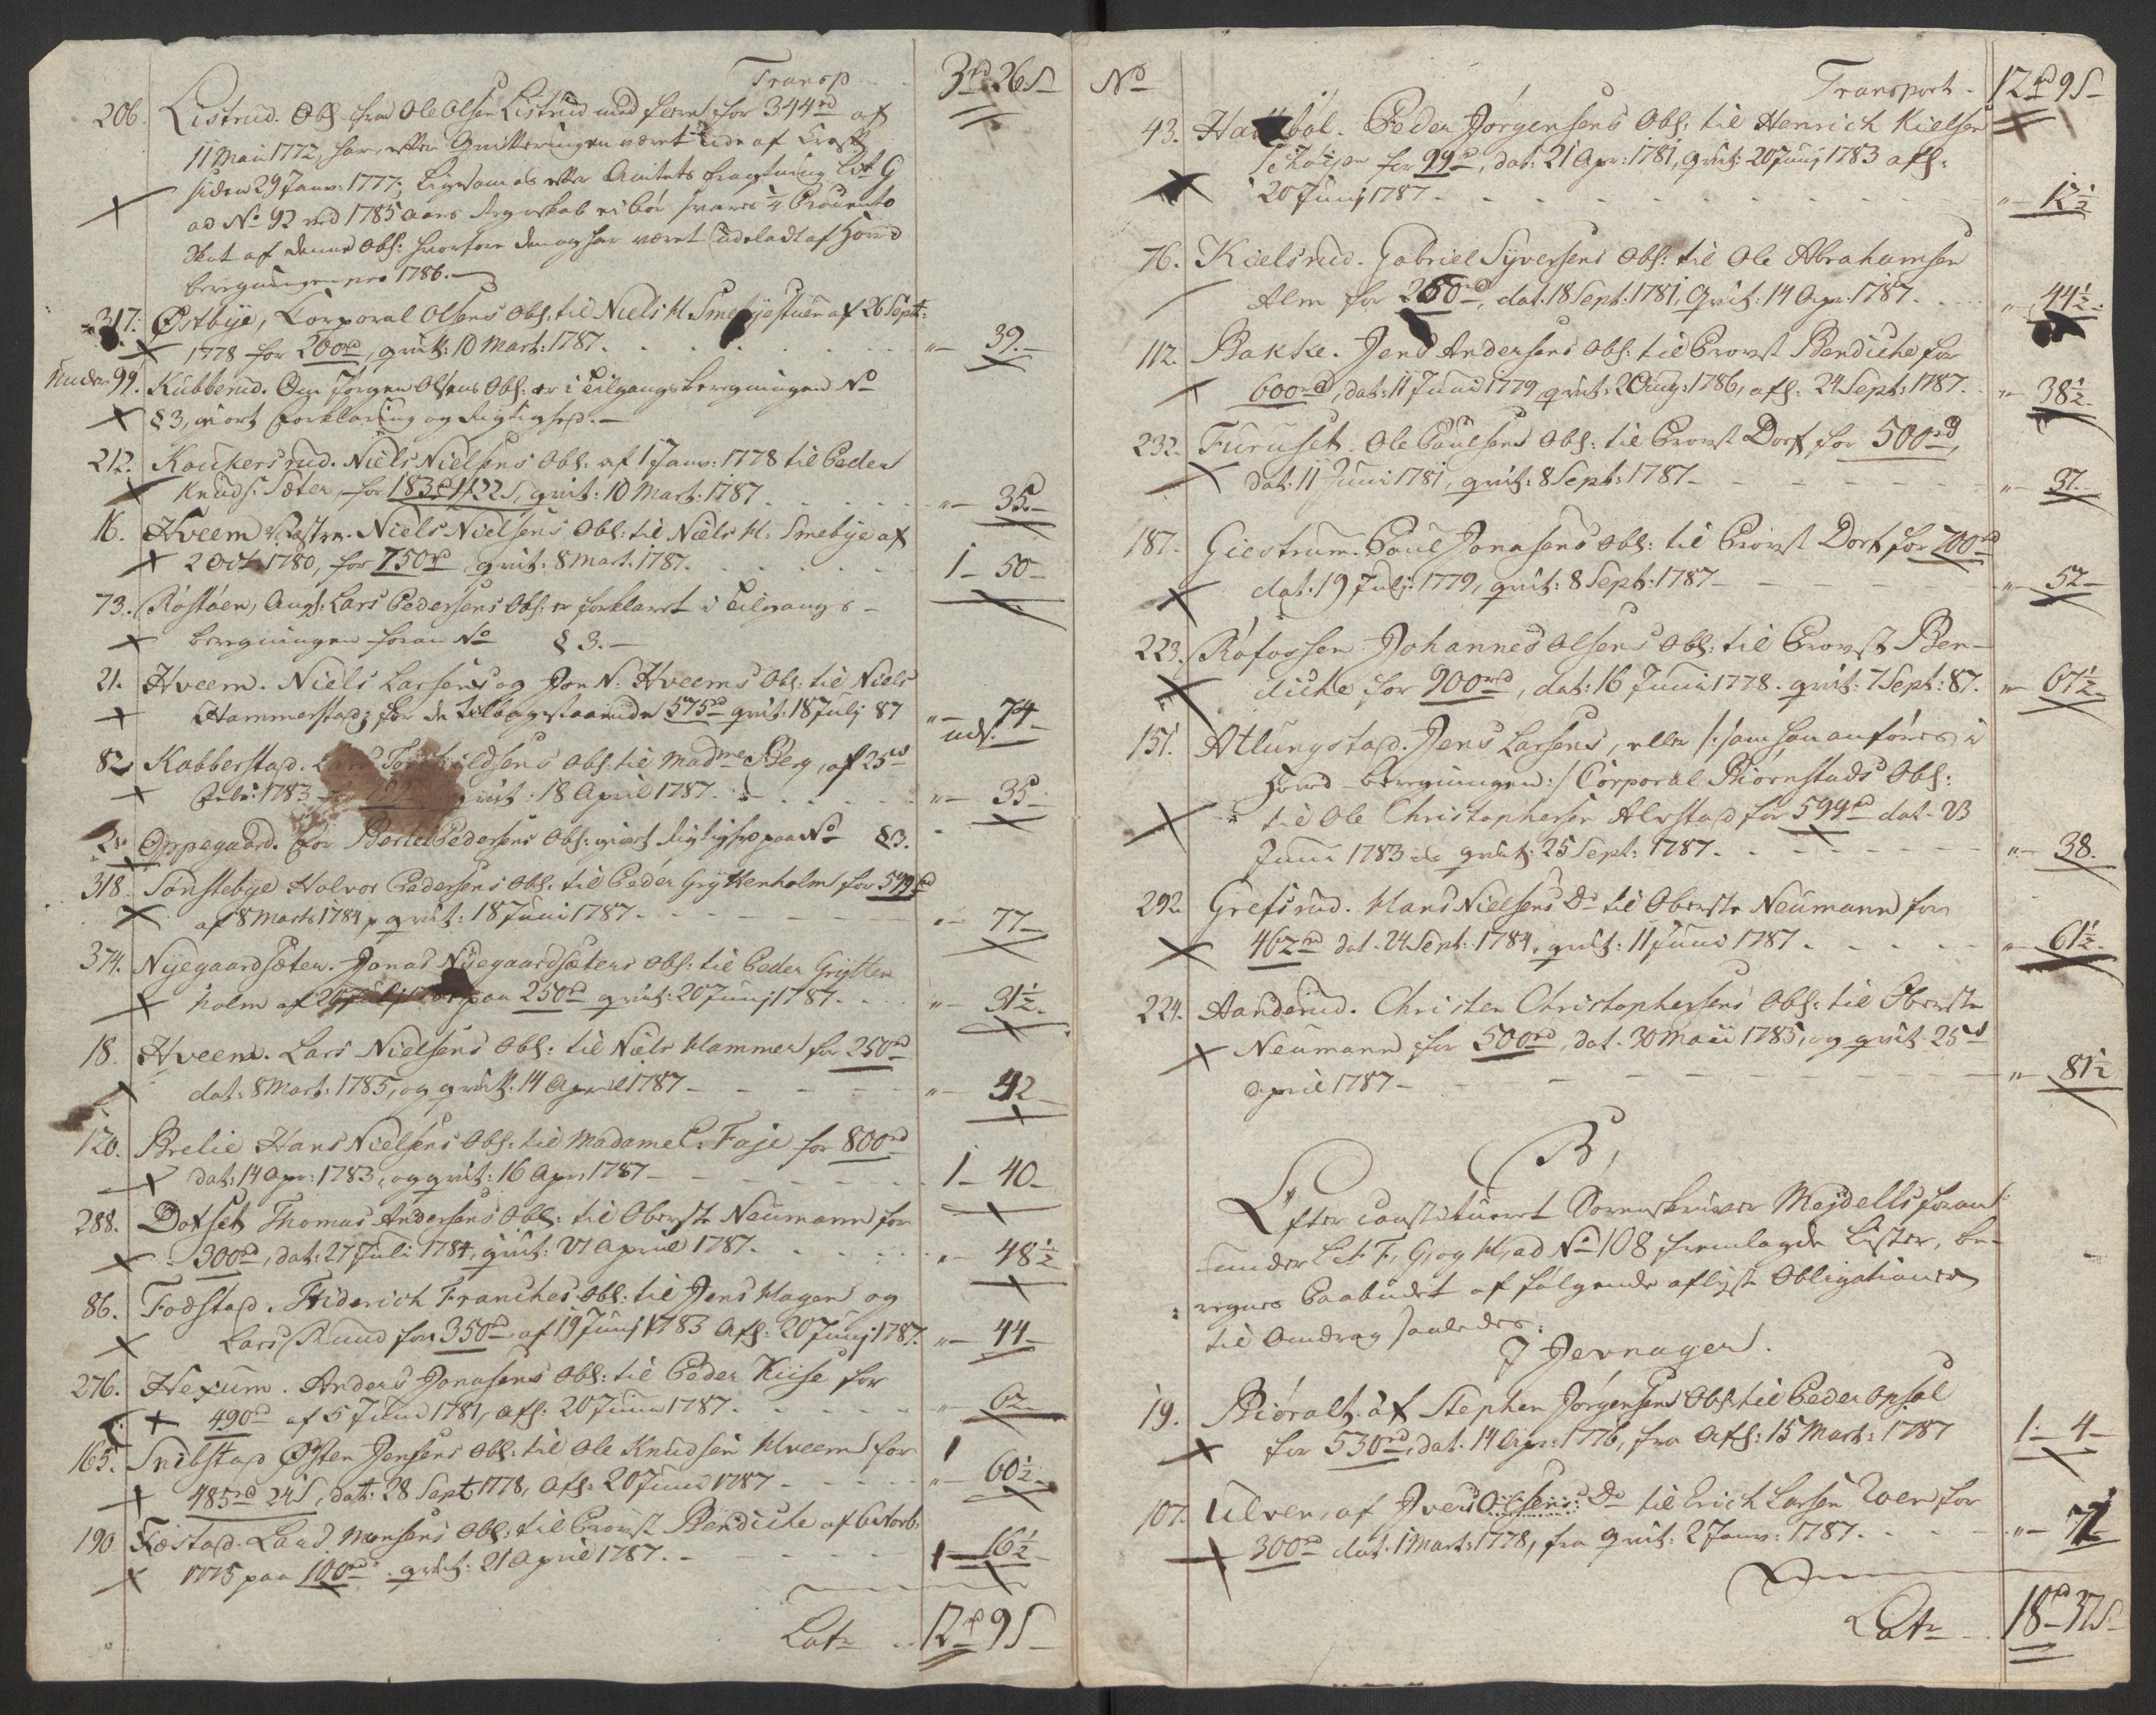 Transp. 3rd 26s
206. Listrud. Obl. fra Ole Olsen Listrud med fleere for 344rd af
11 Mai 1772, har, efter Qvitteringen været ude af Kraft
siden 29 Janv: 1777; ligesom og efter Amtets Lit G
ad No 92 ved 1785 Aars Regnskab ei bør svares 1/4 Procento
Skat af denne Obl: hvorfore den og har været udeladt af Hoved
beregningen pro 1786.
317. Østbye, Corporal Olsens Obl: til Niels H. Smebyestuen af 26 Sept:
1778 for 200rd, qvit: 10 Mart: 1787. " 39.
Under 99. Kubberud. Om Jørgen Olsens Obl: er i Tilgangs beregningen No
§ 3, giort Forklaring og Rigtighed.
212. Koukersrud. Niels Nielsens Obl: af 1 Janv: 1778 til Peder
Knuds: Sæter, for 183rd 1/2 22s, qvit: 10 Mart: 1787 " 35.
16. Hveem Næstre. Niels Nielsens Obl: til Niels H. Smebye af
2 Oct 1780, for 750rd qvit. 8 Mart. 1787. 1 - 50
73. Røstøen, Augs. Lars Pedersens Obl: er forklaret i Tilgangs-
beregningen foran No § 3.
21. Hveem. Niels Larsens og Jon N. Hveems Obl: til Niels
Hammerstad; for de tilbagestaaende 575rd qvit: 18 Julj 87 " 74
uds.
82 Kabberstad. Obl: til Madme Berg, af 25de
Febr: 1783 qvit: 18 April 1787. " 35
Oppegaard. For Bertel Pedersens Obl: giort Rigtighed paa No § 3.
318. Sønstebye Halvor Pedersens Obl. til Peder Gryttenholm for 599rd
af 8 Marts 1784, qvit: 18 Juni 1787. " 77
374. Nyegaardsæter. Jonas Nyegaardsæters Obl: til Peder Grytten
holm af paa 250rd qvit: 20 Junj 1787. " 31 1/2.
18. Hveem. Lars Nielsens Obl: til Niels Hammer for 250rd
dat: 8 Mart: 1785, og qvitt. 14 April 1787 " 42
120. Brelie Hans Nielsens Obl: til Madame C. Faje for 800rd
dat: 14 Apr: 1783, og qvit: 16 Apr 1787 1 - 40
288. Dotset Thomas Andersens Obl: til Oberste Neumann for
300rd, dat: 27 Juli 1784, qvit: 21 April 1787. " 48 1/2
86. Fodstad. Friderich Franches Obl: til Jens Hagen og
Lars Ruud for 350rd af 19 Junj 1783 Afl: 20 Junj 1787. " 44
276. Hexum. Anders Jonasens Obl: til Peder Kiise for
490rd af 5 Juni 1781, afl: 20 Juni 1787. " 62
165. Snibstad Østen Jensens Obl: til Ole Knudsen Hveem for
485rd 24s, dat: 28 Sept 1778, Afl: 20 Juni 1787 " 60 1/2
190. Fæstad. Lars Monsens Obl: til Provst Bendicke af 6 Novb:
1775 paa 100rd qvit: 21 April 1787. 1 - 16 1/2
Lat: 12rd 9s
No Transport. 12rd 9s
43. Hakkbøl. Peder Jørgensens Obl: til Henrich Nielsen
Schøyen for 99rd, dat: 21 Apr: 1781, qvit: 20 Junj 1783 afl:
20 Junj 1787 " 12 1/2
76. Kielsrud. Gabriel Syversens Obl: til Ole Abrahamsen
Alm for 260rd, dat. 18 Sept. 1781, Qvit: 14 Apr: 1787. " 44 1/2
112. Bakke. Jens Andersens Obl: til Provst Bendicke for
600rd, dat: 11 Juni 1779, qvit: 2 Aug: 1786, afl: 24 Sept: 1787. " 38 1/2
232. Furuset. Ole Poulsens Obl: til Provst Dorf for 500rd,
dat: 11 Juni 1781, qvit: 8 Sept: 1787 " 37.
187. Giestrum. Poul Jonasens Obl: til Provst Dorf for 700rd
dat. 19 Julj: 1779, qvit: 8 Sept: 1787 " 52
223. Røfossen Johannes Olsens Obl: til Provst Ben-
dicke for 900rd, dat: 16 Juni 1778. qvit: 7 Sept: 87. " 67 1/2
151. Atlungstad. Jens Larsens, eller /: som han anføres i
Hoved-beregningen :/ Corporal Biørnstads Obl:
til Ole Christophersen Alvstad for 599rd dat. 23
Juni 1783 qvit: 25 Sept: 1787. " 38.
292. Grefsrud. Hans Nielsens Do til Oberste Neumann for
462rd dat. 24 Sept: 1784, qvit: 11 Juni 1787. " 61 1/2.
224. Aanderud. Christen Christophersens Obl: til Oberste
Neumann for 500rd, dat. 30 Maii 1785, og qvit 25de
April 1787 " 81 1/2
B,
Efter constitueret Sorenskriver Mejdells foran
under Lit F, G, og H, ad No 108 fremlagde Lister, be-
regnes Paabudet af følgende aflyste Obligationer
til Omdrag saaledes:
I Jevnager.
19. Biøralt af Stephen Jørgensens Obl: til Peder Opsal
for 530rd, dat. 14 Apr: 1776, fra Afl: 15 Mart: 1787 1 - 4
107. Ulven, af Iver Olsens Do til Erich Larsen Toen for
300rd dat. 1 Mart: 1778, fra qvit: 2 Janv: 1787. " 72
Lat: 18rd 37s